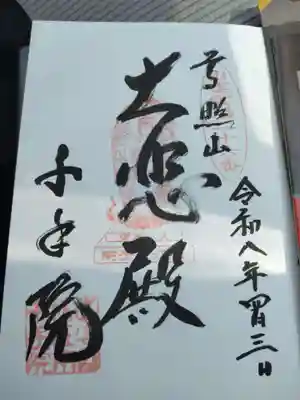 高照山
令和八年四月三日
大悲殿
千手院